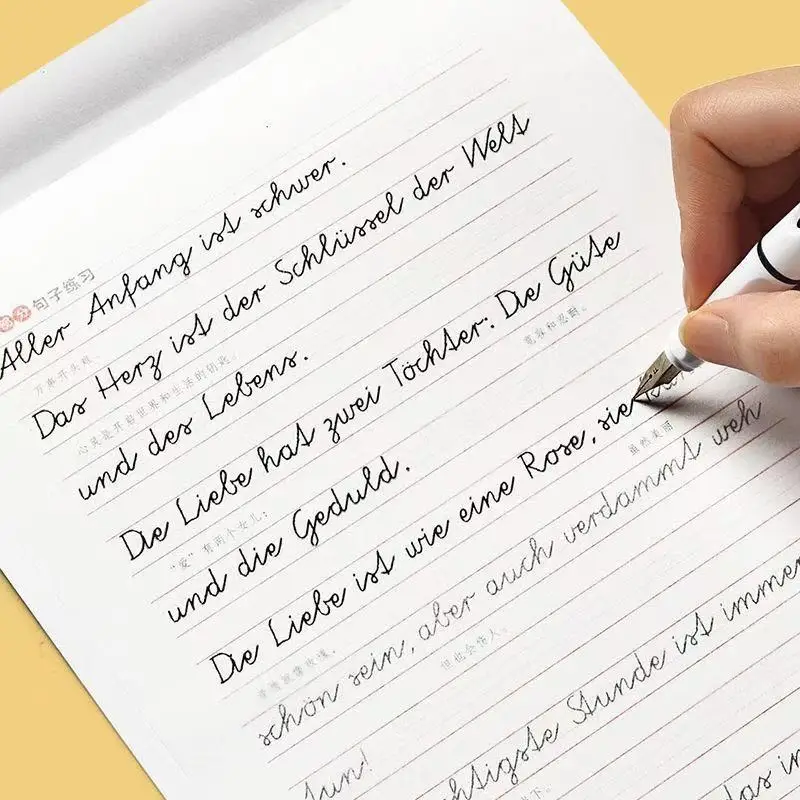 部分 句子练习
Aller Anfang ist schwer.
万事开头难。
Das Herz ist der Schlüssel der Welt
心灵是开启世界和生活的钥匙。
und des Lebens.
Die Liebe hat zwei Töchter: Die Güte
“爱”有两个女儿： 宽容和忍耐。
und die Geduld.
Die Liebe ist wie eine Rose, sie
爱情就像玫瑰， 虽然美丽
schön sein, aber auch verdammt weh
但也会伤人。
tun!
chtigste Stunde ist immer
下。
das